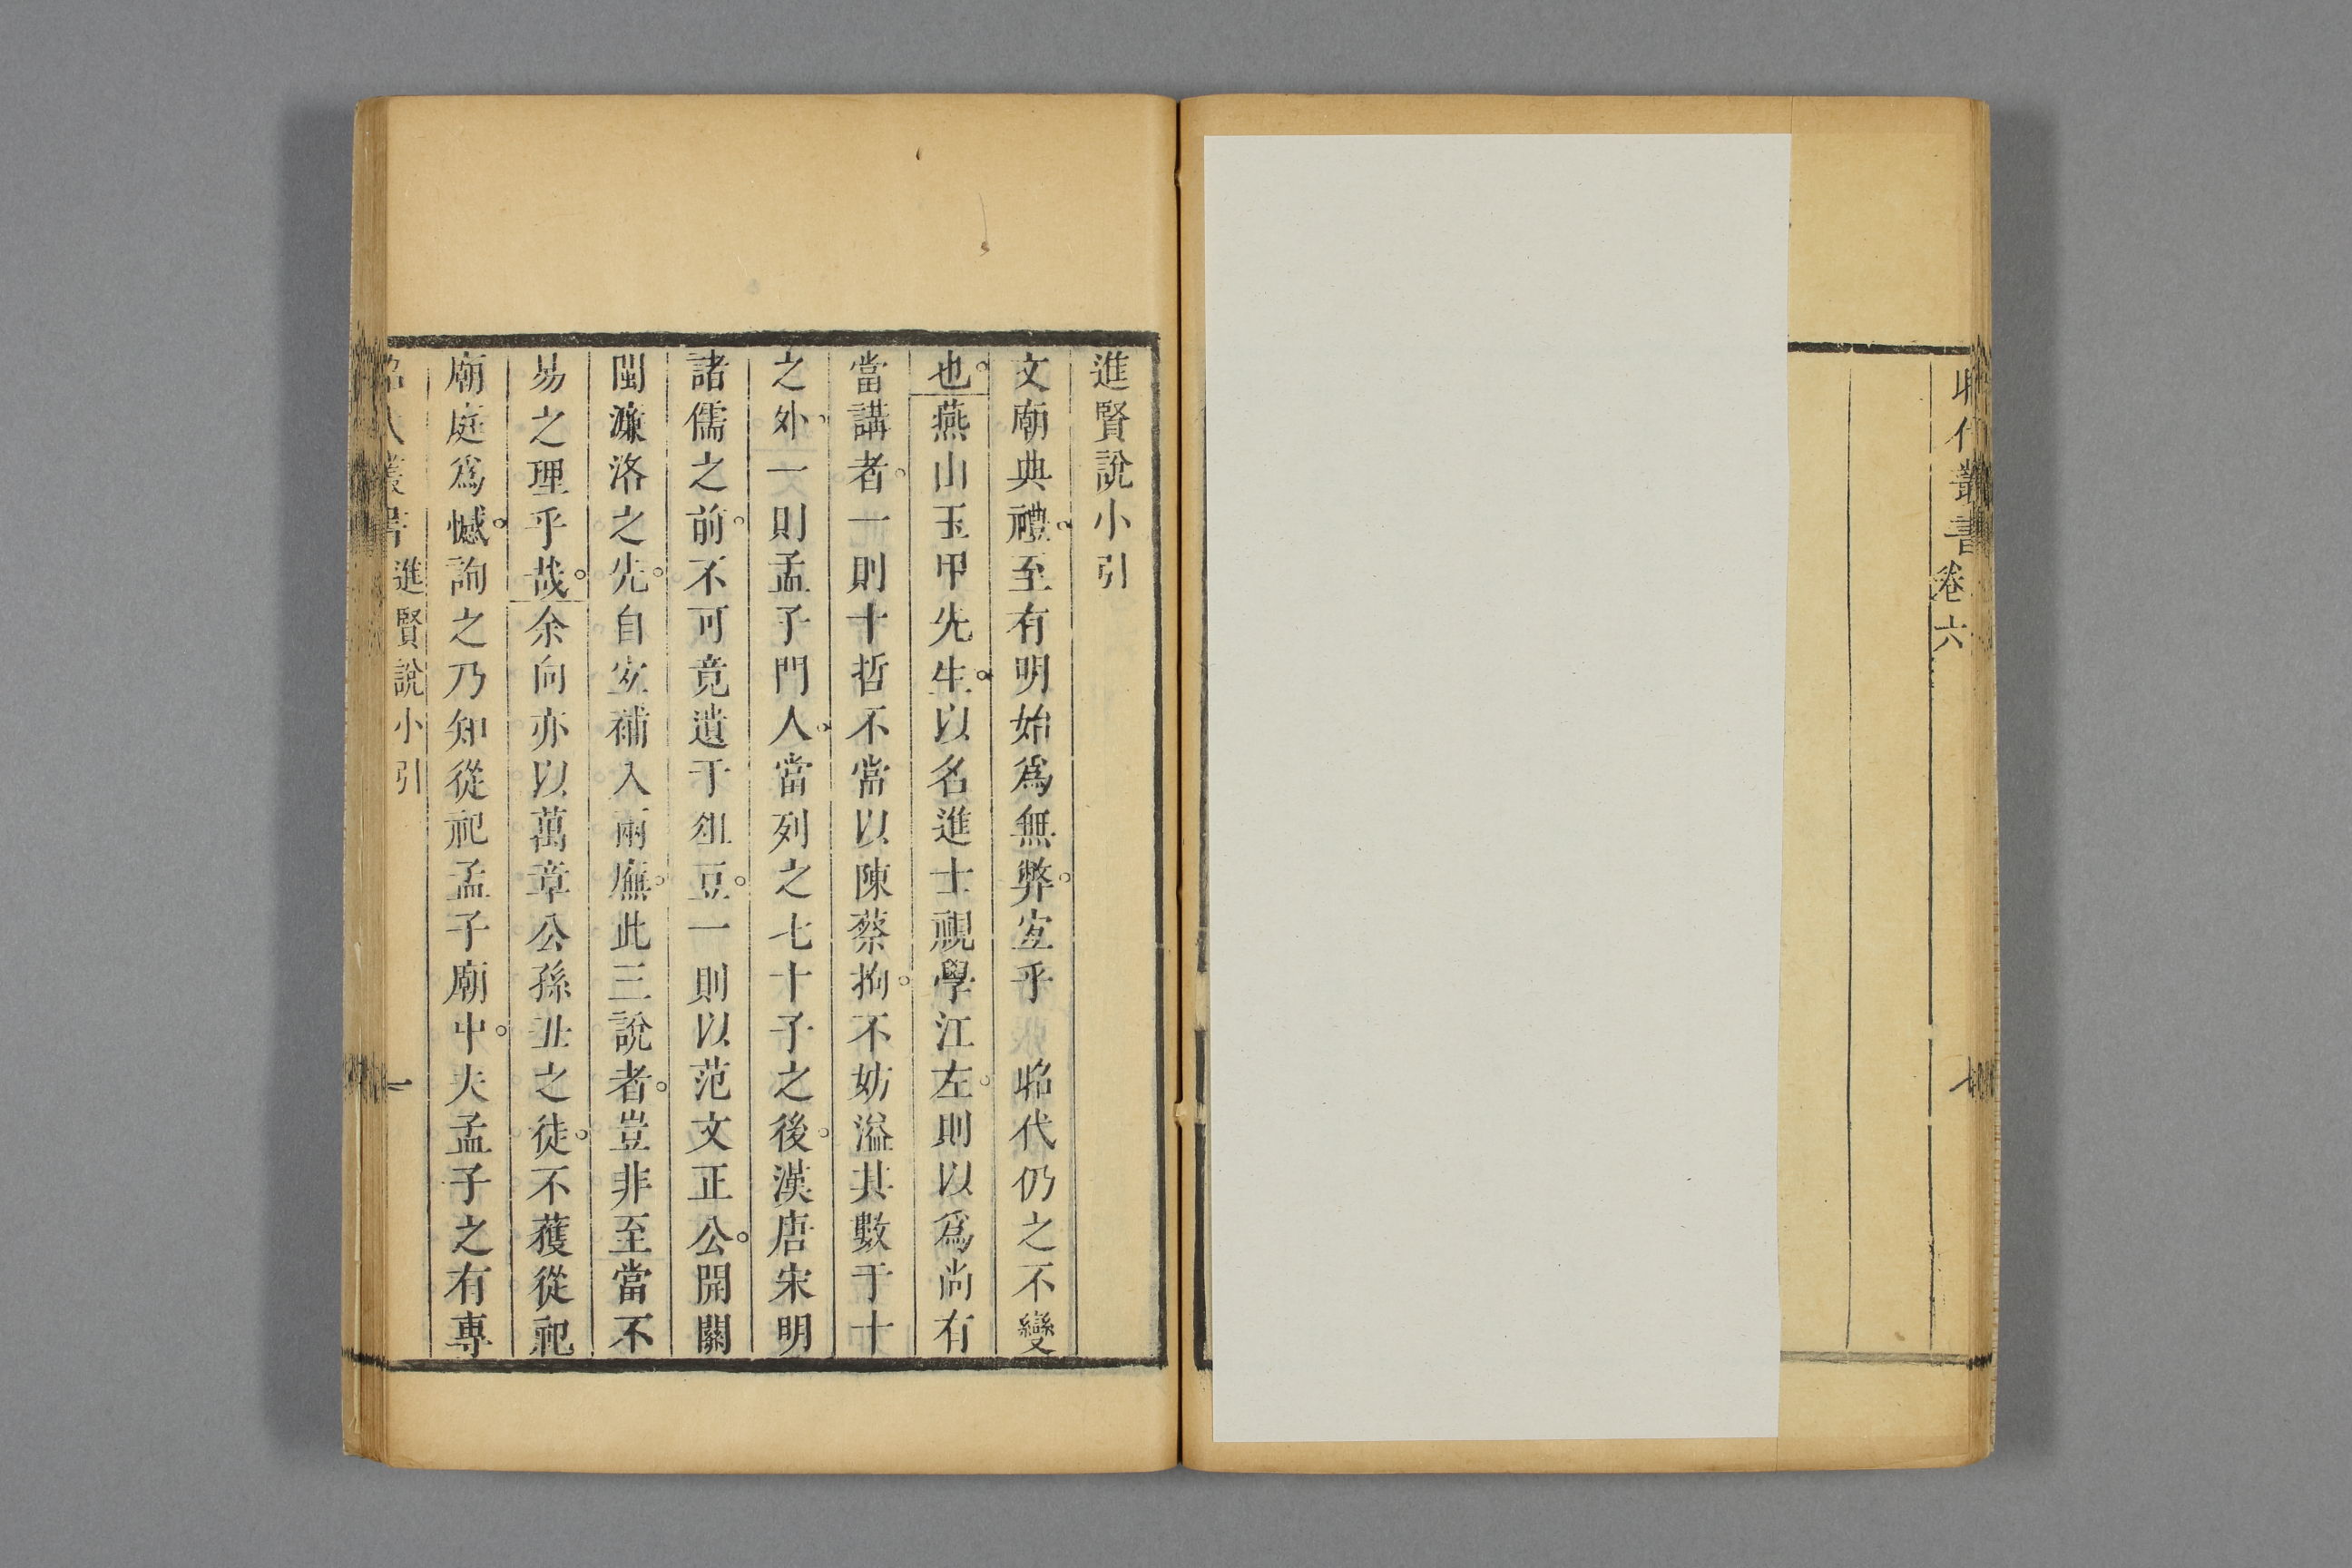 昭代叢書
卷六
七
進賢說小引
文廟典禮。至有明始爲無弊。宜乎 昭代仍之不變
也。燕山玉甲先生。以名進士視學江左。則以爲尚有
當講者。一則十哲不當以陳蔡拘。不妨溢其數于十
之外。一則孟子門人。當列之七十子之後。漢唐宋明
諸儒之前。不可竟遺于俎豆。一則以范文正公。開關
閩濂洛之先。自宜補入兩廡。此三說者。豈非至當不
易之理乎哉。余向亦以萬章公孫丑之徒。不獲從祀
廟庭爲憾。詢之乃知從祀孟子廟中。夫孟子之有專
昭代叢書
進賢說小引
一